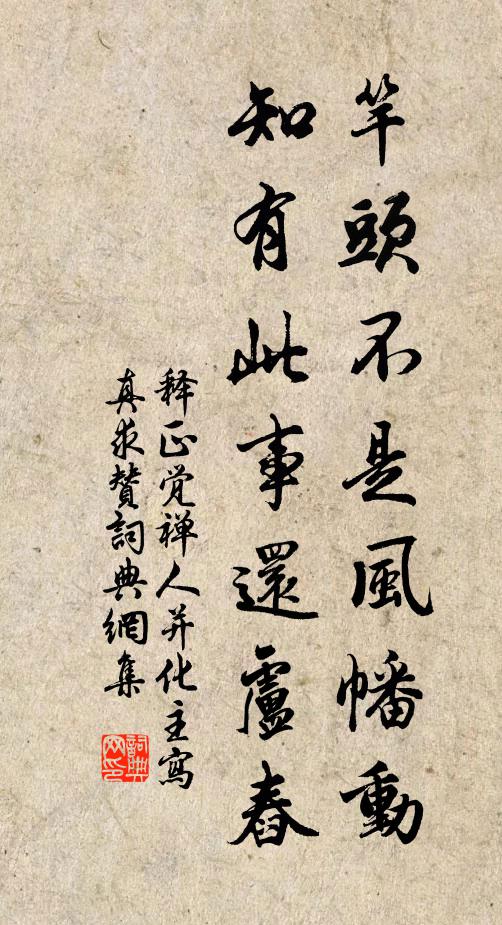 竿頭不是風幡動
知有此事還盧舂
释正觉禅人并化主寫
真求贊詞典網集
詞典网印